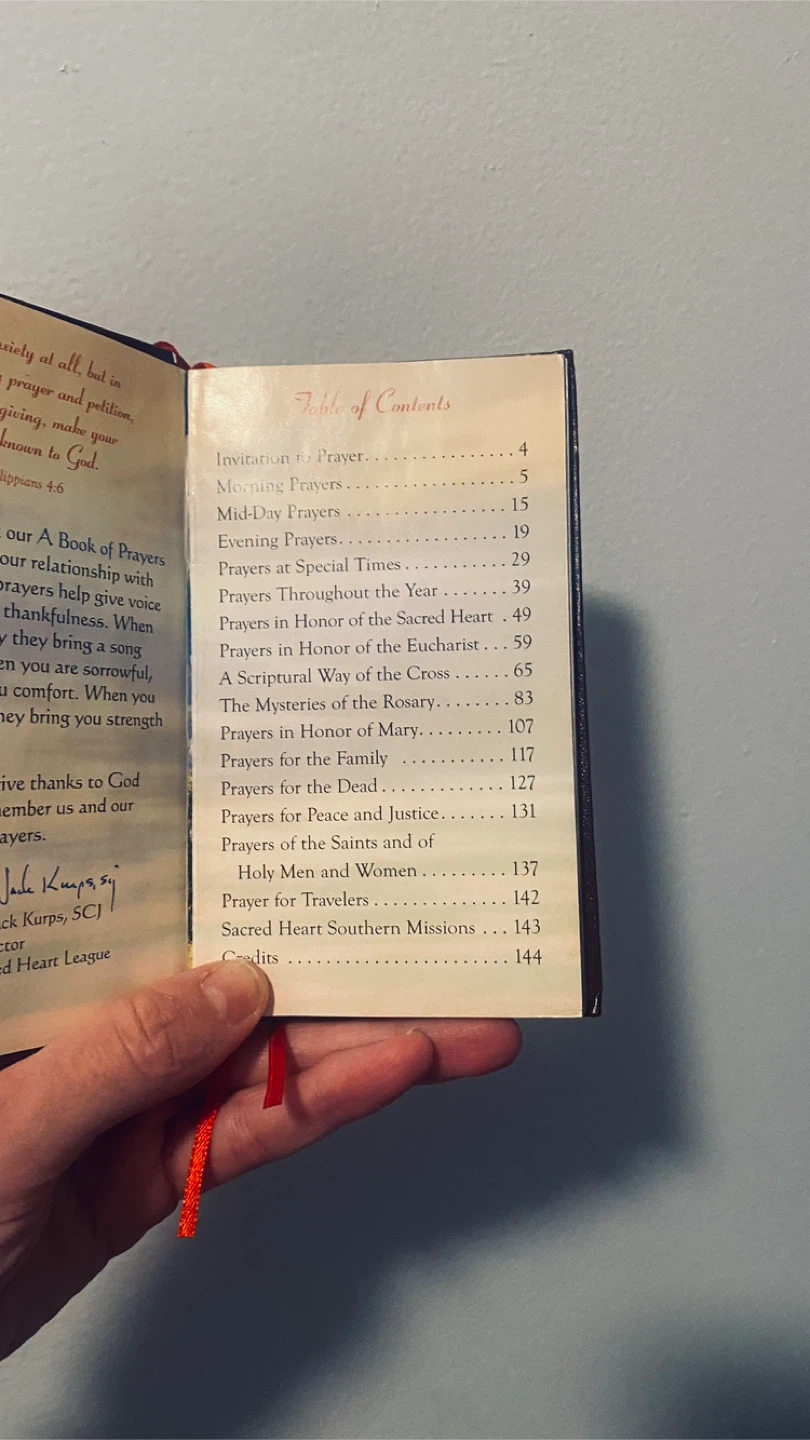 at all, but in
prayer and petition,
giving, make your
known to God.
4:6
our A Book of Prayers
our relationship with
prayers help give voice
thankfulness. When
they bring a song
you are sorrowful,
comfort. When you
they bring you strength
give thanks to God
us and our
Jack Kurps, scj
Kurps, SCJ
Heart League
Table of Contents
Invitation to Prayer. . . . . . . . . . . . . . . . 4
Morning Prayers . . . . . . . . . . . . . . . . . 5
Mid-Day Prayers . . . . . . . . . . . . . . . . 15
Evening Prayers. . . . . . . . . . . . . . . . . 19
Prayers at Special Times . . . . . . . . . . 29
Prayers Throughout the Year . . . . . . . 39
Prayers in Honor of the Sacred Heart . 49
Prayers in Honor of the Eucharist . . . 59
A Scriptural Way of the Cross . . . . . . 65
The Mysteries of the Rosary. . . . . . . . 83
Prayers in Honor of Mary. . . . . . . . . 107
Prayers for the Family . . . . . . . . . . . 117
Prayers for the Dead . . . . . . . . . . . . . 127
Prayers for Peace and Justice. . . . . . . 131
Prayers of the Saints and of
Holy Men and Women . . . . . . . . . 137
Prayer for Travelers . . . . . . . . . . . . . . 142
Sacred Heart Southern Missions . . . 143
Credits . . . . . . . . . . . . . . . . . . . . . . . 144